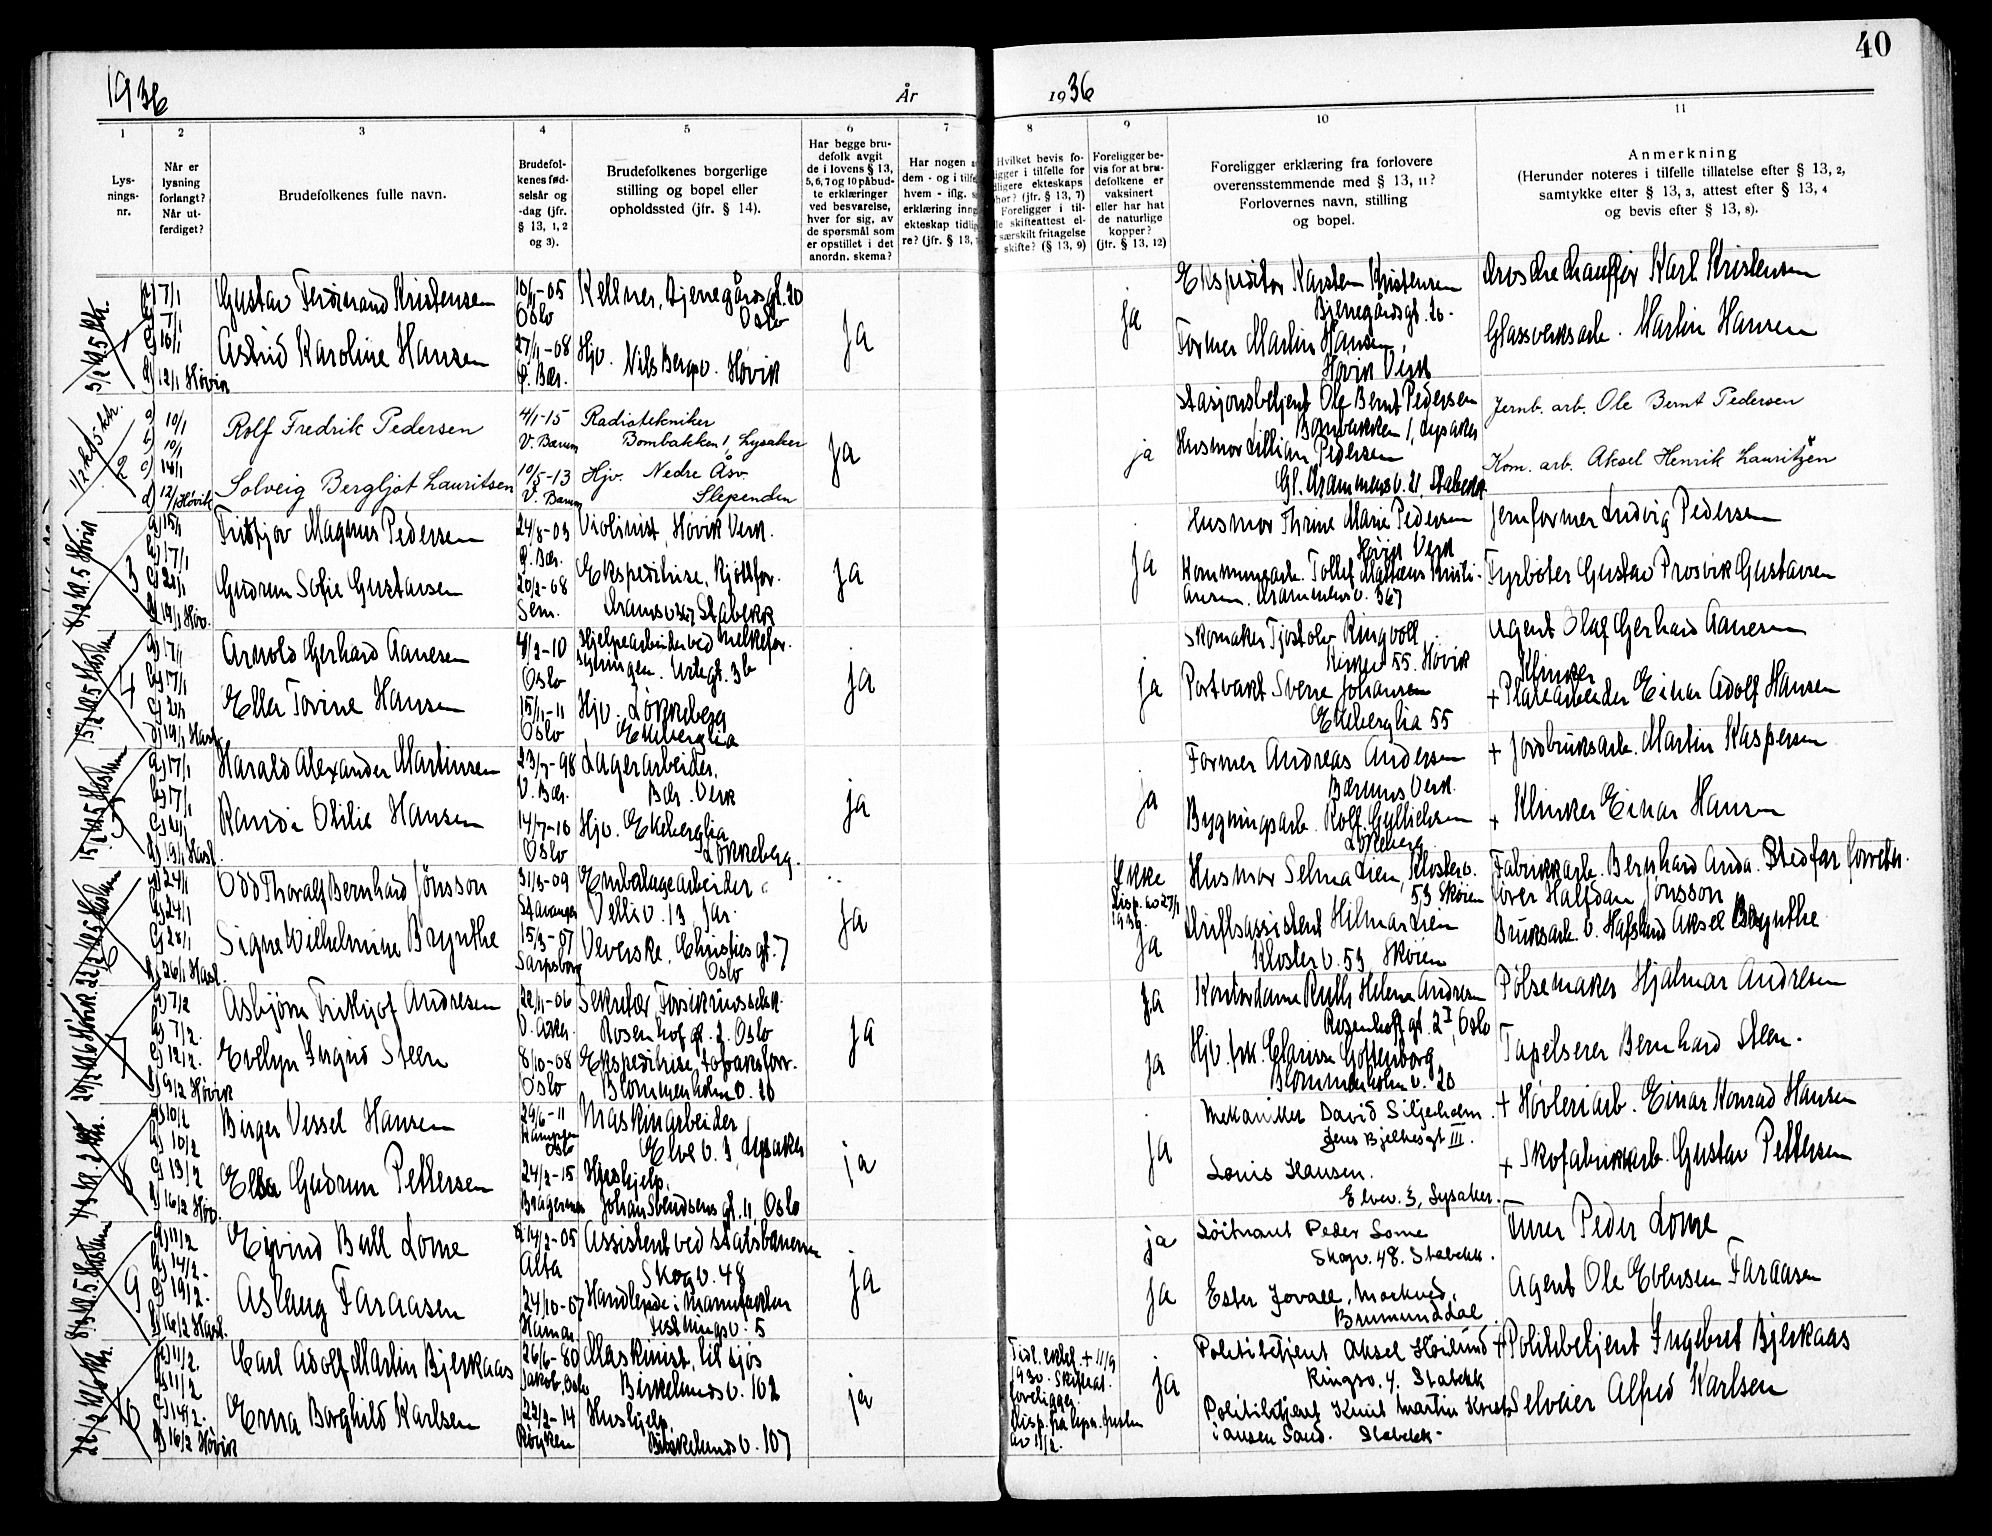 40
1936
År
1936
1
2
3
4
5
6
7
8
9
10
11
Lys-
nings-
nr.
Når er
lysning
forlangt?
Når ut-
ferdiget?
Brudefolkenes fulle navn.
Brudefol-
kenes fød-
selsår og
-dag (jfr.
§ 13, 1, 2
og 3).
Brudefolkenes borgerlige
stilling og bopel eller
opholdssted (jfr. § 14).
Har begge bru-
defolk avgit
de i lovens § 13,
5, 6, 7 og 10 påbud-
te erklæringer
ved besvarelse,
hver for sig, av
de spørsmål som
er opstillet i det
anordn. skema?
Har nogen
dem - og i
hvem - iflg.
erklæring
ekteskap
re? (jfr. § 13,
Hvilket bevis fo-
ligger i tilfelle for
ekteskaps
(jfr. § 13, 7)
Foreligger i til-
skifteattest el-
særskilt fritagelse
skifte? (§ 13, 9)
Foreligger be-
vis for at bru-
defolkene er
vaksinert
eller har hat
de naturlige
kopper?
(jfr. § 13, 12)
Foreligger erklæring fra forlovere
overensstemmende med § 13, 11?
Forlovernes navn, stilling
og bopel.
Anmerkning
(Herunder noteres i tilfelle tillatelse efter § 13, 2,
samtykke efter § 13, 3, attest efter § 13, 4
og bevis efter § 13, 8).
7/1
7/1
10/1
12/1 Høvik
Gustav Ferdinand Kristensen
10/1-05
Oslo
Kellner, Bjerregårdsgt. 20
Oslo
Astrid Karoline Hansen
27/11-08
Hjv. Nils Bergsv. Høvik
Ja
ja
Ekspeditør Karsten Kristensen
Bjerregårdsgt. 20.
Former Martin Hansen,
Høvik Verk
Droschechauffør Karl Kristensen
Glassverksarb. Martin Hansen
2
a) 10/1
b) 10/1
c) 14/1
d) 12/1 Høvik
Rolf Fredrik Pedersen
4/1-15
V. Bærum
Radiotekniker
Bombakken 1, Lysaker
Solveig Bergljot Lauritsen
10/5-13
V. Bærum
Hjv. Nedre Åsv.
Slependen
Ja
ja
Stasjonsbetjent Ole Bernt Pedersen
Bombakken 1, Lysaker
Husmor Lillian Pedersen
Gl. Drammensv. 21, Stabekk
Jernb. arb. Ole Bernt Pedersen
Kom. arb. Aksel Henrik Lauritzen
3
15/1
17/1
19/1 Høv.
Fritjov Magnus Pedersen
24/8-03
Violinist, Høvik Verk.
Gudrun Sofie Gustavsen
20/2-08
Sem.
Ekspeditrise, Kjøttfor.
Stabekk
Ja
ja
Husmor Thrine Marie Pedersen
Høvik Verk
Kommunearb. Tollef Kristi-
ansen. Drammensv. 367
Jernformer Ludvig Pedersen
Fyrbøter Gustav Prosvik Gustavsen
4
17/1
17/1
19/1 Hasl.
Arnold Gerhard Aanesen
4/2-10
Oslo
Hjelpearbeider ved melkefor-
syningen. Urtegt. 3b
Ella Torine Hansen
15/11-11
Oslo
Hjv. Løkkeberg
Ekeberglia
ja
ja
Skomaker Tjostolv Ringvoll
Kirkev 55. Høvik
Portvakt Sverre Johansen
Ekeberglia 55
Agent Olaf Gerhard Aanesen
Klinker
+ Platearbeider Einar Adolf Hansen
5
17/1
17/1
19/1 Hasl.
Harald Alexander Martinsen
23/7-98
V. Bær.
Lagerarbeider,
Bær. Verk
Randi Otilie Hansen
14/7-16
Oslo
Hjv. Ekeberglia
Løkkeberg.
ja
ja
Former Andreas Andersen
Bærums Verk.
Bygningsarb. Rolf Gulliksen
Løkeberg
+ Jordbruksarb. Martin Kaspersen
+ Klinker Einar Hansen
6
24/1
24/1
28/1
26/1 Hasl.
Odd Thoralf Bernhard Jönsson
31/3-09
Stavanger
Embalagearbeider
Velliv. 13, Jar.
Signe Wilhelmine Brynthe
15/3-07
Sarpsborg
Veverske, Christies gt. 7
Oslo
Ja
Ikke
Disp. av 27/1
1936.
ja
Husmor Selma Lien, Klosterv.
53 Skøien
Driftsassistent Hilmar Lien
Kloster v. 53, Skøien
Fabrikkarb. Bernhard Anda. Stedfar
Halfdan Jönsson
Bruksarb. v. Hafslund Aksel Brynthe
7
7/2
7/2.
12/2.
9/2 Høvik
Asbjørn Fritjof Andresen
22/11-06
V. Aker.
Sekretær, Forsikringsselsk.
Rosenhof gt. 2. Oslo
Evelyn Ingrid Steen
8/10-08
Oslo
Ekspeditrise, tobaksforr.
Blommenholm v. 20
ja
Ja
ja
Kontordame Ruth Helene Andresen
Rosenhoff gt. 2 I, Oslo
Hjv. frk Clarissa Gottenborg
Blommenholm v. 20
Pølsemaker Hjalmar Andresen
Tapetserer Bernhard Steen.
8
10/2
10/2
13/2
16/2 Høv.
Birger Vessel Hansen
29/6-11
Kampen
Oslo
Maskinarbeider
Elve v. 3, Lysaker
Gudrun Pettersen
24/2-15
Bragernes
Hushjelp,
Johan Svendsens gt. 11 Oslo
ja
ja
Mekaniker David Siljeholm.
Jens Bjelkesgt III.
Louis Hansen.
Elvev. 3, Lysaker.
+ Høvleriarb. Einar Konrad Hansen
+ Skofabrikkarb. Gustav Pettersen
9
11/2
14/2.
19/2.
16/2 Hasl.
Eyvind Bull Lome
14/2-05
Alta
Assistent ved statsbanene
Skogv. 48
Aslaug Faraasen
24/10-07
Hamar
Handlende i manufaktur
v. 5
ja
ja
ja
Løitnant Peder Lome
Skogv. 48. Stabekk.
Ester Jovall, Markved,
Brumunddal.
Furer Peder Lome
Agent Ole Evensen Faraasen
10
11/2.
11/2
14/2.
16/2 Høvik
Carl Adolf Martin Bjerkaas
26/6-80
Jakob, Oslo
Maskinist, til sjøs
Birkelunds v. 102
Erna Borghild Karlsen
22/2-14
Røyken
Hushjelp,
Birkelunds v. 107
ja
Tidl. ektef. + 11/9
1930. Skifteat.
foreligger.
av 11/2.
ja
Politibetjent Aksel Høilund
Ringsv. 4. Stabekk
Politibetjent Knut Martin Krist-
iansen Sand. Stabekk.
+ Politibetjent Ingebret Bjerkaas
Selveier Alfred Karlsen